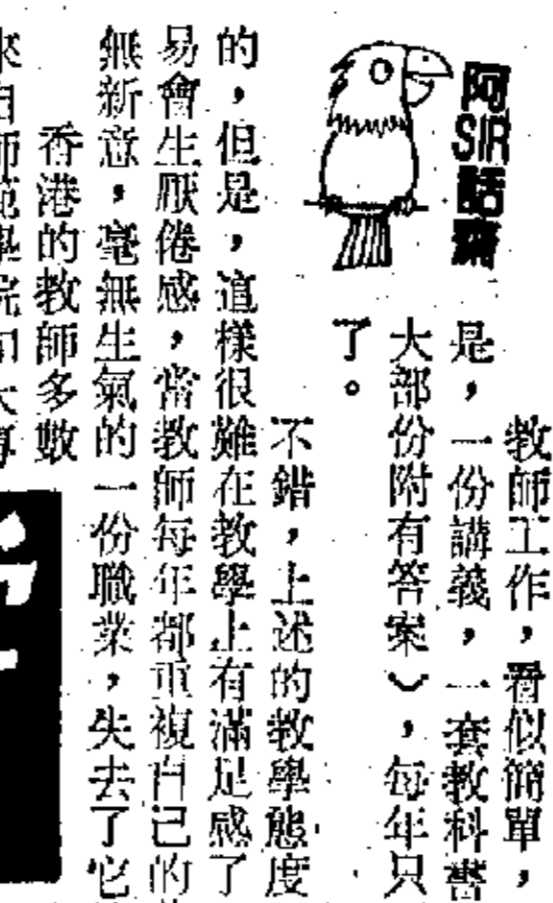 阿
SIR
話
齋
教師工作，看似簡單，
是，一份講義，一套教科書
大部份附有答案），每年只
了。
不錯，上述的教學態度
的，但是，這樣很難在教學上有滿足感了
易會生厭倦感，當教師每年都重複自己的
無新意，毫無生氣的一份職業，失去了它
香港的教師多數
來自師範學院和大專